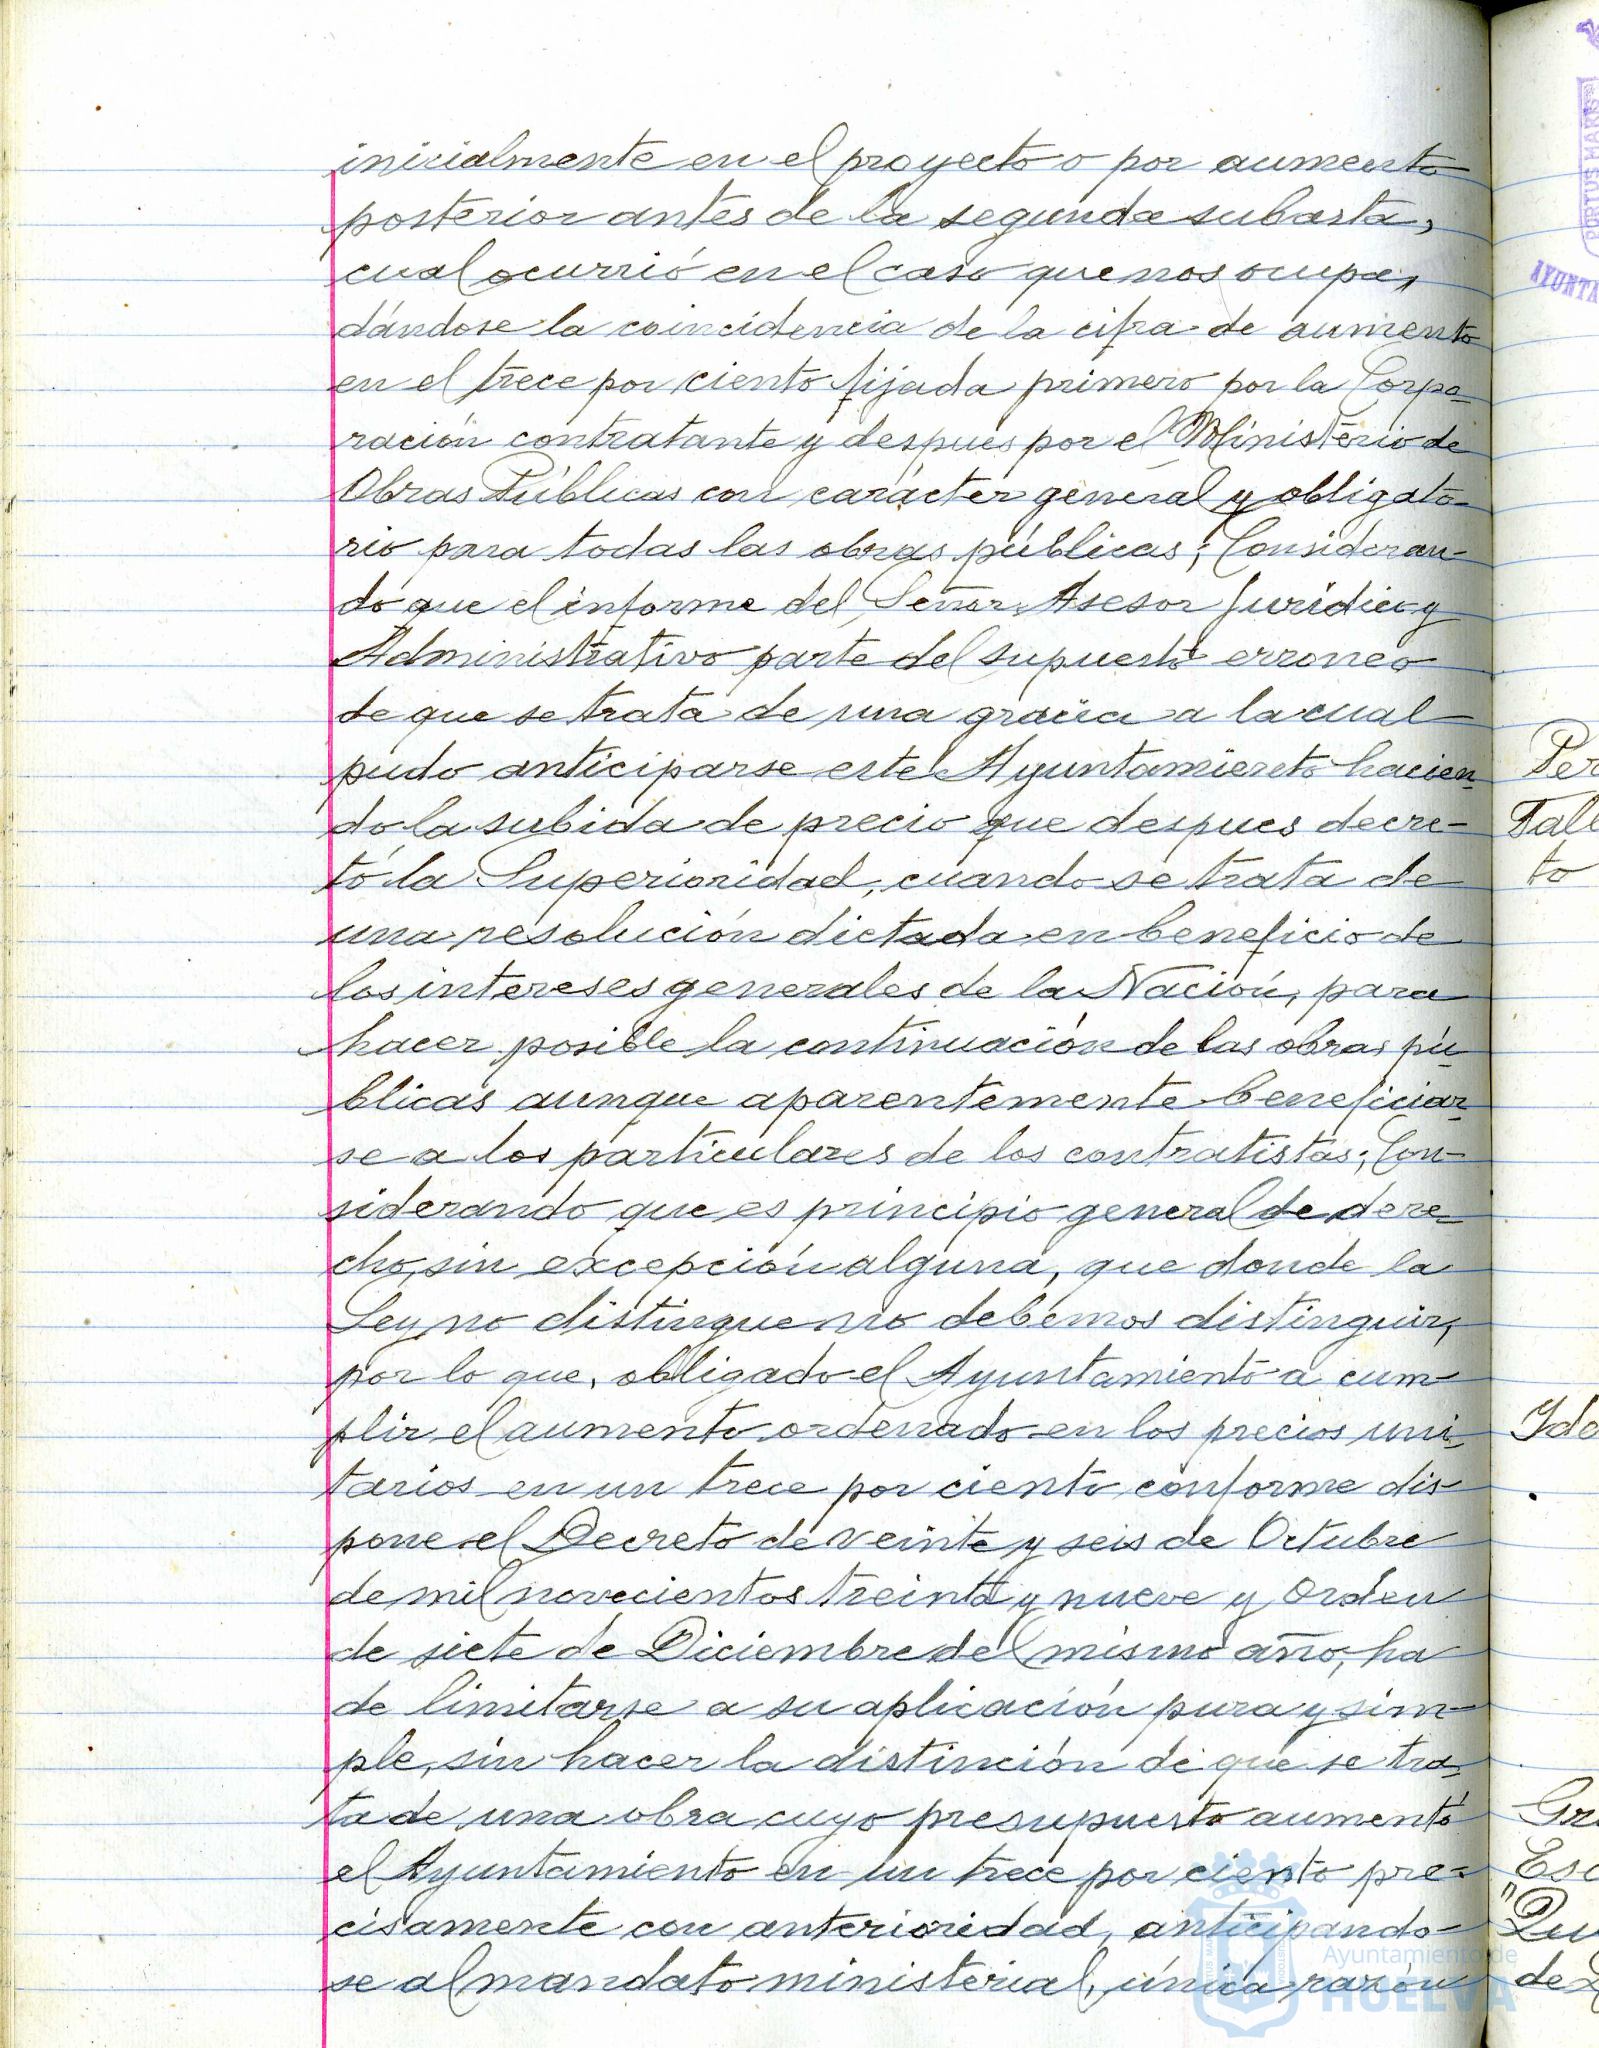 inicialmente en el proyecto o por aumento
posterior antes de la segunda subasta,
cual ocurrió en el caso que nos ocupa,
dándose la coincidencia de la cifra de aumento
en el trece por ciento fijada primero por la Corpo-
ración contratante y despues por el Ministerio de
Obras Públicas con carácter general y obligato-
rio para todas las obras públicas; Consideran-
do que el informe del Señor Asesor Juridico y
Administrativo parte del supuesto erroneo
de que se trata de una gracia a la cual
pudo anticiparse este Ayuntamiento hacien-
do la subida de precio que despues decre-
tó la Superioridad, cuando se trata de
una resolución dictada en beneficio de
los intereses generales de la Nación, para
hacer posible la continuación de las obras pú-
blicas aunque aparentemente beneficiar-
se a los particulares de los contratistas; Con-
siderando que es principio general de dere-
cho, sin excepción alguna, que donde la
Ley no distingue no debemos distinguir,
por lo que, obligado el Ayuntamiento a cum-
plir el aumento ordenado en los precios uni-
tarios en un trece por ciento conforme dis-
pone el Decreto de veinte y seis de Octubre
de mil novecientos treinta y nueve y Orden
de siete de Diciembre del mismo año, ha
de limitarse a su aplicación pura y sim-
ple, sin hacer la distinción de que se tra-
ta de una obra cuyo presupuesto aumentó
el Ayuntamiento en un trece por ciento pre-
cisamente con anterioridad, anticipando-
se al mandato ministerial, única razón
PORTUS MARIS
AYUNTA
Per
Tall
to
Ydo
Gr
Esc
"Qu
de
Ayuntamiento de
HUELVA